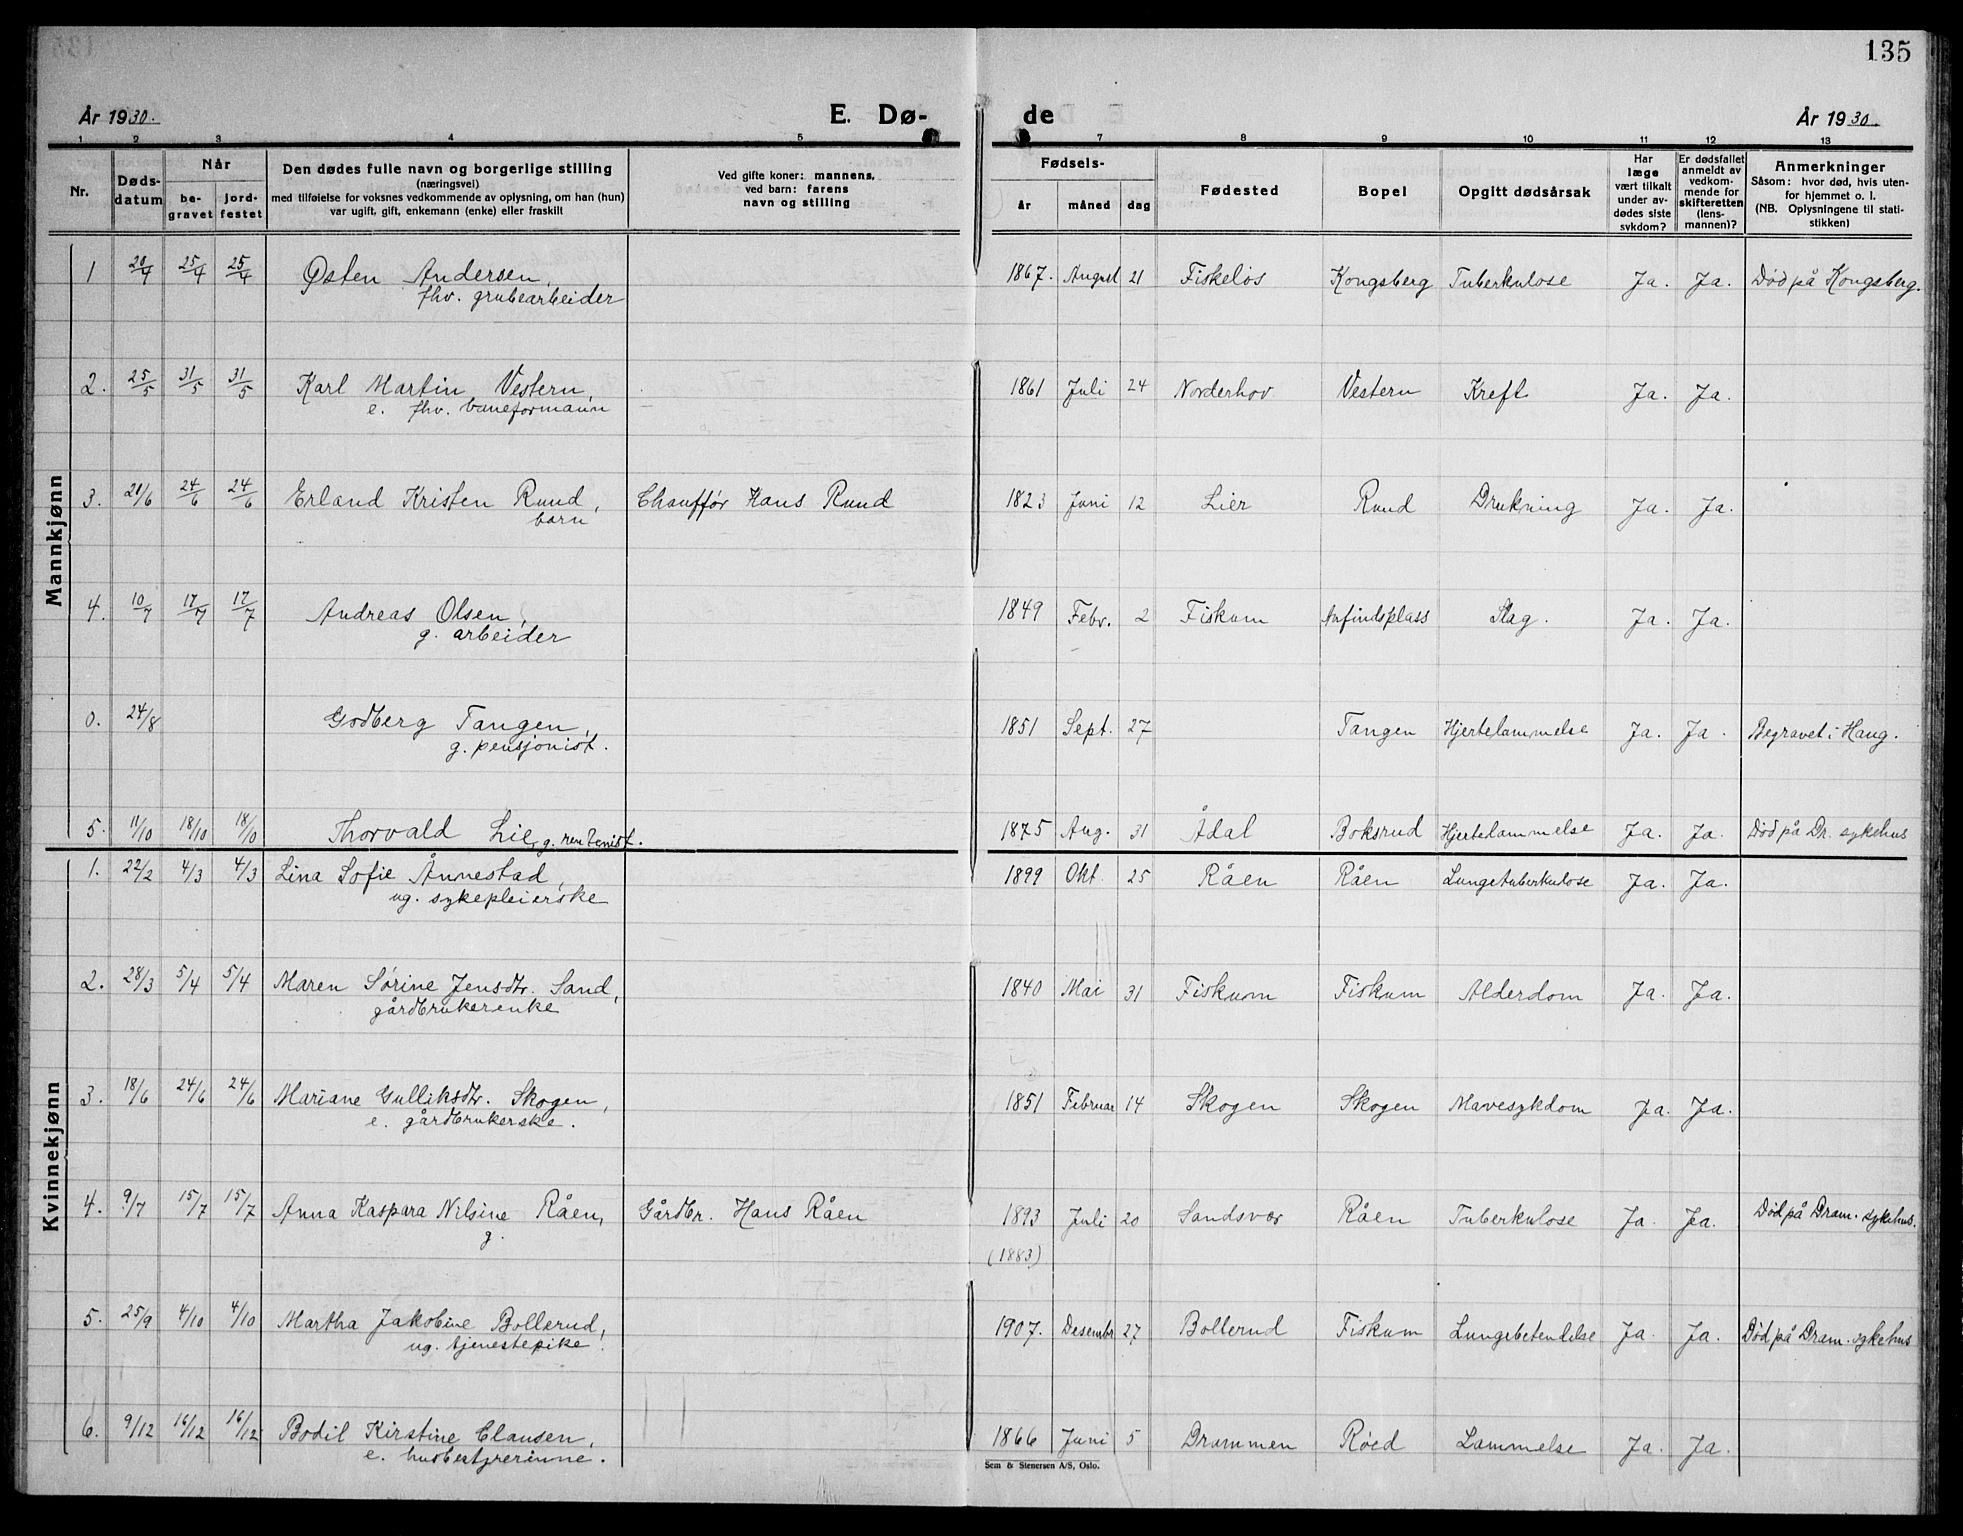 135
År 1930. E. Dø- de År 1930.
1 2 3 4 5 7 8 9 10 11 12 13
Nr.
Døds-
datum
Når
be-
gravet
jord-
festet
Den dødes fulle navn og borgerlige stilling
(næringsvei)
med tilføielse for voksnes vedkommende av oplysning, om han (hun)
var ugift, gift, enkemann (enke) eller fraskilt
Ved gifte koner: mannens,
ved barn: farens
navn og stilling
Fødsels-
år måned dag
Fødested
Bopel
Opgitt dødsårsak
Har
læge
vært tilkalt
under av-
dødes siste
sykdom?
Er dødsfallet
anmeldt av
vedkom-
mende for
skifteretten
(lens-
mannen)?
Anmerkninger
Såsom: hvor død, hvis uten-
for hjemmet o. l.
(NB. Oplysningene til stati-
stikken)
Mannkjønn
1 20/4 25/4 25/4 Østen Andersen, 1867. August 21 Fiskeløs Kongsberg Tuberkulose Ja. Ja. Død på Kongsberg.
fhv. grubearbeider
2. 25/5 31/5 31/5 Karl Martin Vestern, 1861 Juli 24 Norderhov Vestern Kreft Ja. Ja.
e. fhv. baneformann
3. 20/6 24/6 24/6 Erland Kristen Rund, Chauffør Hans Rund 1823 Juni 12 Lier Rund Drukning Ja. Ja.
barn
4. 10/7 17/7 17/7 Andreas Olsen, 1849 Febr. 2 Fiskum Anfindsplass Slag. Ja. Ja.
g. arbeider
0. 24/8 Godberg Tangen, 1851 Sept. 27 Tangen Hjertelammelse Ja. Ja. Begravet i Haug.
g. pensjonist.
5. 11/10 18/10 18/10 Thorvald Lie, g. rentenist. 1875 Aug. 31 Ådal Boksrud Hjertelammelse Ja. Ja. Død på Dr. sykehus
Kvinnekjønn
1. 22/2 4/3 4/3 Lina Sofie Ånnestad, 1899 Okt. 25 Råen Råen Lungetuberkulose Ja. Ja.
ug. sykepleierske
2. 28/3 5/4 5/4 Maren Sørine Jensdtr. Sand, 1840 Mai 31 Fiskum Fiskum Alderdom Ja. Ja.
gårdbrukerenke
3. 18/6 24/6 24/6 Mariane Gulliksdtr. Skogen, 1851 Februar 14 Skogen Skogen Mavesykdom Ja. Ja.
e. gårdbrukerske.
4. 9/7 15/7 15/7 Anna Kaspara Nilsine Råen, Gårdbr. Hans Råen 1893 Juli 20 Sandsvær Råen Tuberkulose Ja. Ja. Død på Dram. sykehus.
g.
(1883)
5. 25/9 4/10 4/10 Martha Jakobine Bollerud, 1907. Desembr 27 Bollerud Fiskum Lungebetendelse Ja. Ja. Død på Dram. sykehus
ug. tjenestepike.
6. 9/12 16/12 16/12 Bodil Kirstine Clausen, 1866 Juni 5 Drammen Røed Lammelse Ja. Ja.
e. husbestyrerinne.
Sem & Stenersen A/S, Oslo.